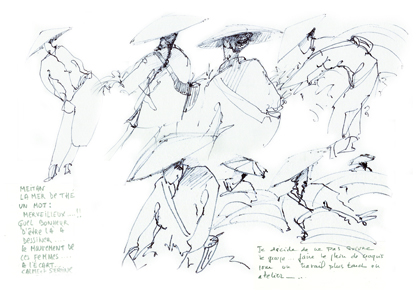 MEITAN
LA MER DE THÉ
UN MOT:
MERVEILLEUX....!!
QUEL BONHEUR
D'ÊTRE LÀ À
DESSINER
LE MOUVEMENT DE
CES FEMMES
À L'ÉCART
Je décide de ne pas suivre
le groupe faire le plein de croquis
pour un travail plus tard en
atelier....